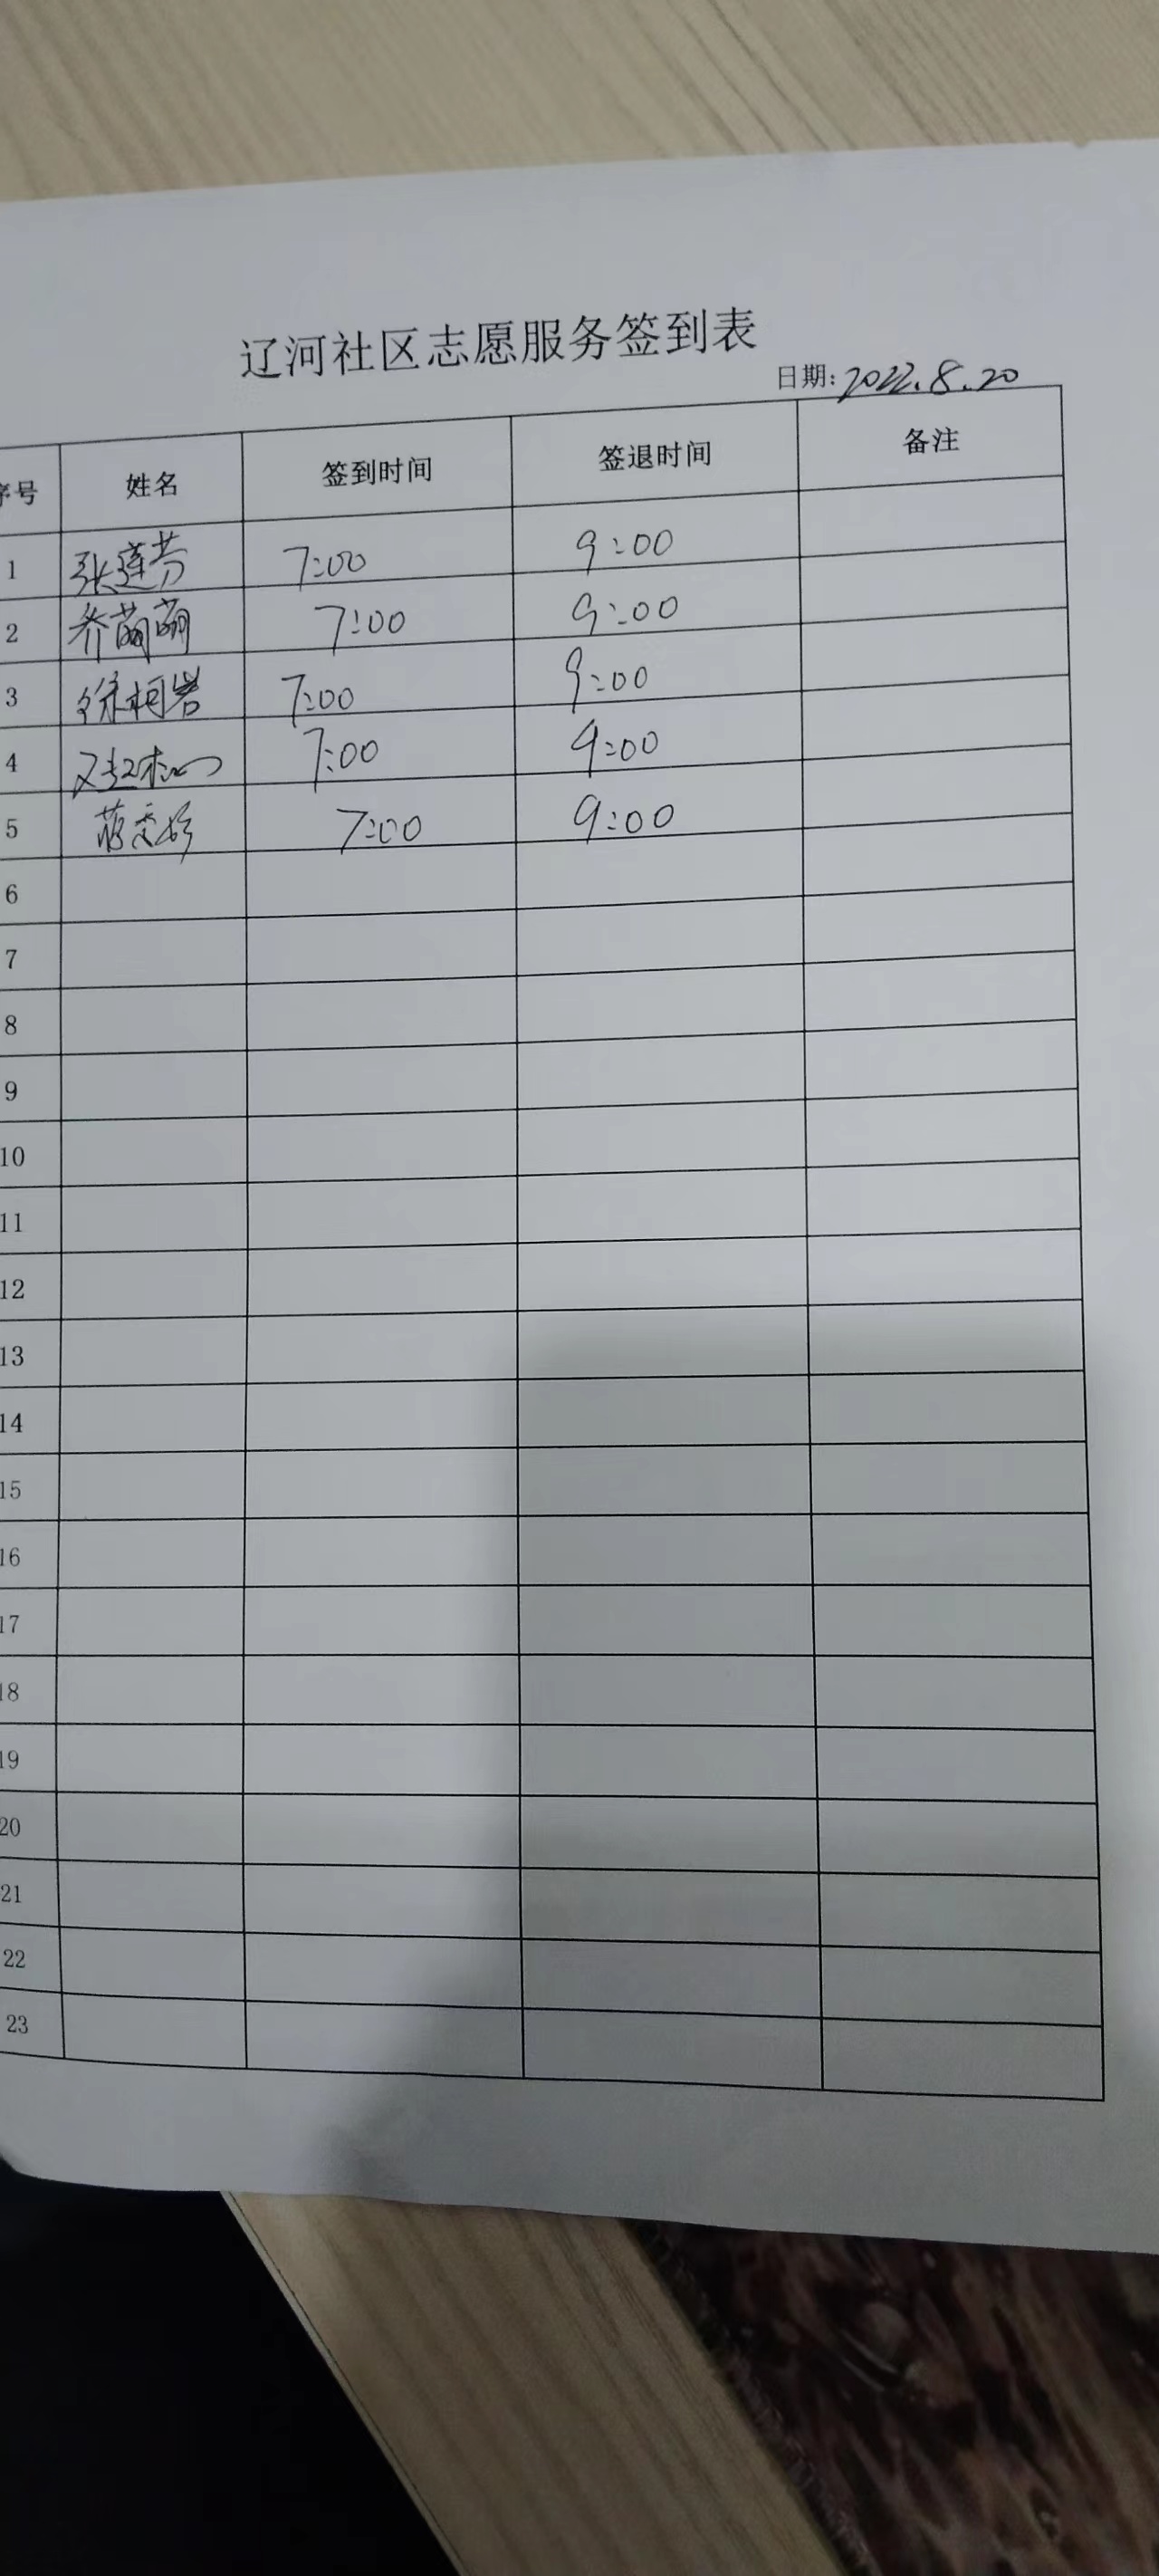 辽河社区志愿服务签到表
日期: 2022.8.20
序号 姓名 签到时间 签退时间 备注
1 张莲芬 7:00 9:00
2 乔萌萌 7:00 9:00
3 徐柯岩 7:00 9:00
4 7:00 9:00
5 7:00 9:00
6
7
8
9
10
11
12
13
14
15
16
17
18
19
20
21
22
23